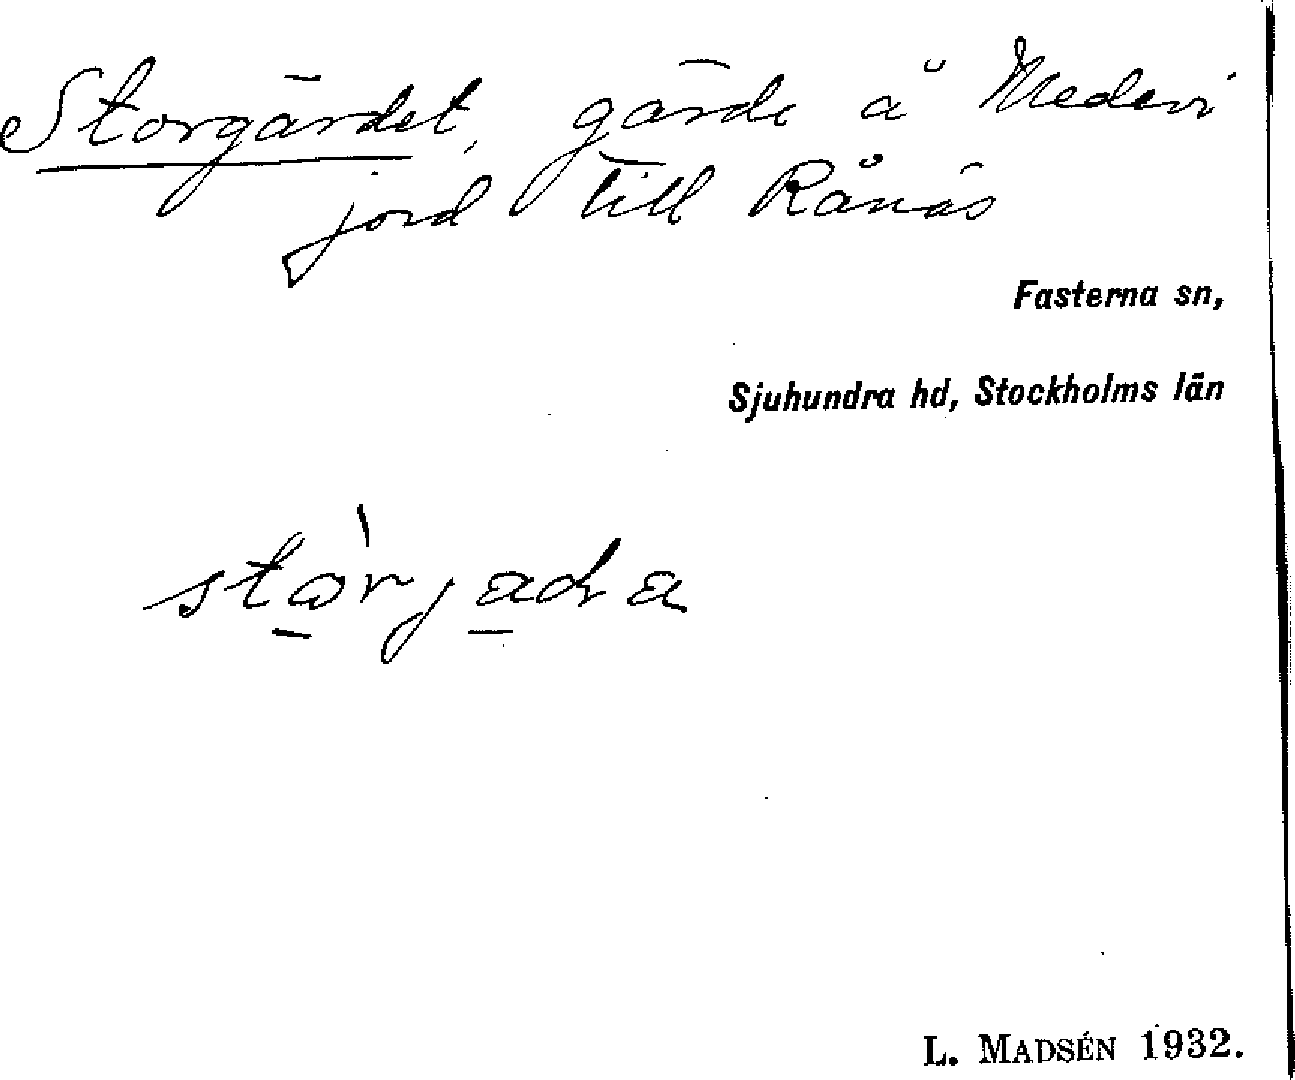 Storgärdet, gärde å Medevi
jord till Rånäs
Fasterna sn,
Sjuhundra hd, Stockholms län
L. MADSÉN 1932.